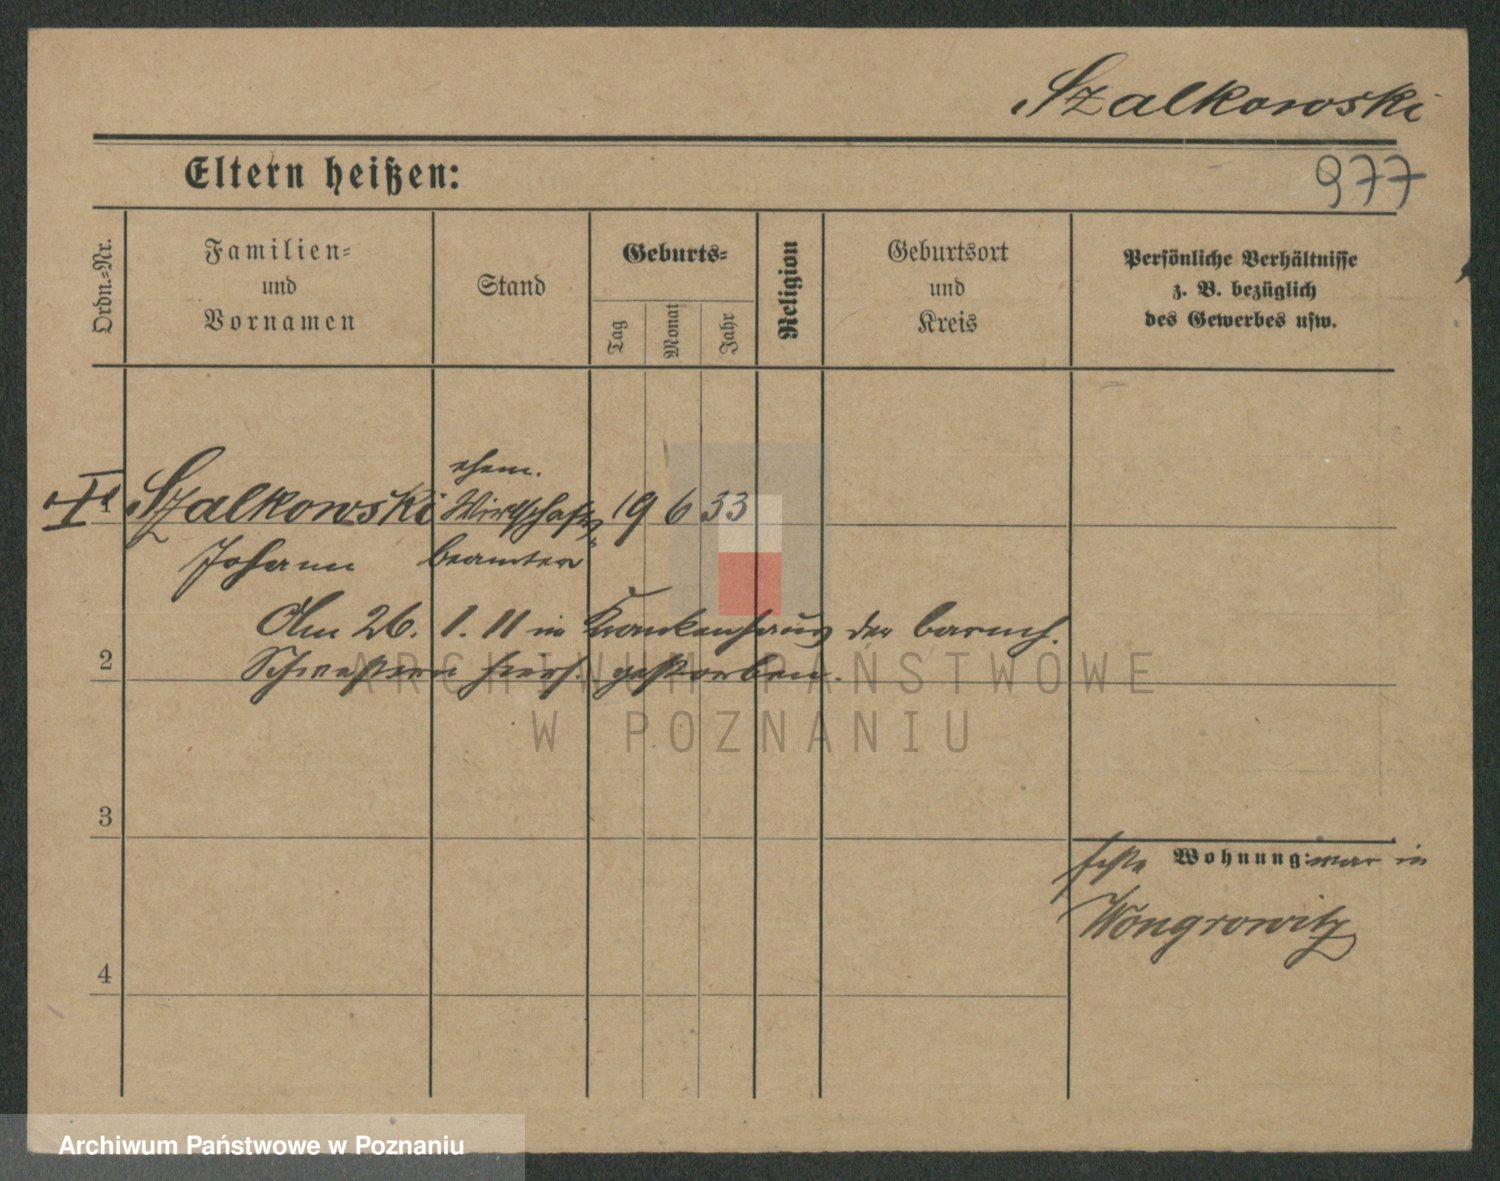 Szalkowski
977
Eltern heißen:
Ordn.-Nr.
Familien-
und
Vornamen
Stand
Geburts-
Tag
Monat
Jahr
Religion
Geburtsort
und
Kreis
Persönliche Verhältnisse
z. B. bezüglich
des Gewerbes usw.
1 Szalkowski ehem. Wirtschafts- 19 6 33
Johann beamter
Am 26. 1. 11 im Krankenhaus der barmh.
2 Schwestern hiers. gestorben.
ARCHIWUM PAŃSTWOWE
W POZNANIU
3
feste Wohnung: war in
Wongrowitz
4
Archiwum Państwowe w Poznaniu